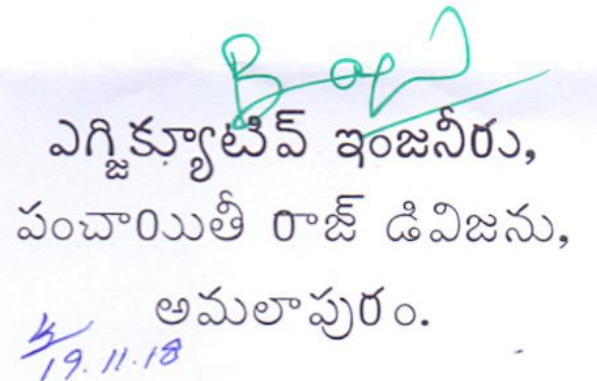 ఎగ్జిక్యూటివ్ ఇంజనీరు,
పంచాయితీ రాజ్ డివిజను,
అమలాపురం.
19.11.18